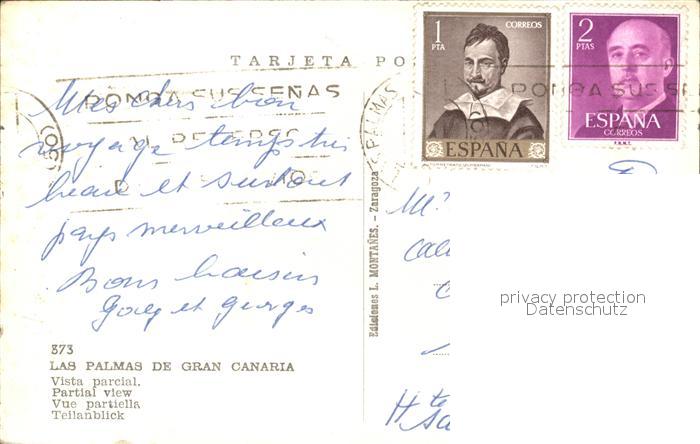 TARJETA PO
1
PTA
CORREOS
ESPAÑA
2
PTAS
ESPAÑA
CORREOS
F.N.M.T.
PONGA SUS SEÑAS
PONGA SUS SE
PALMAS
Mes chers bon
voyage temps très
beau et surtout
pays merveilleux
Bons baisers
et georges
Ediciones L. MONTAÑES. - Zaragoza
M
privacy protection
Datenschutz
H te
873
LAS PALMAS DE GRAN CANARIA
Vista parcial.
Partial view
Vue partiella
Teilanblick